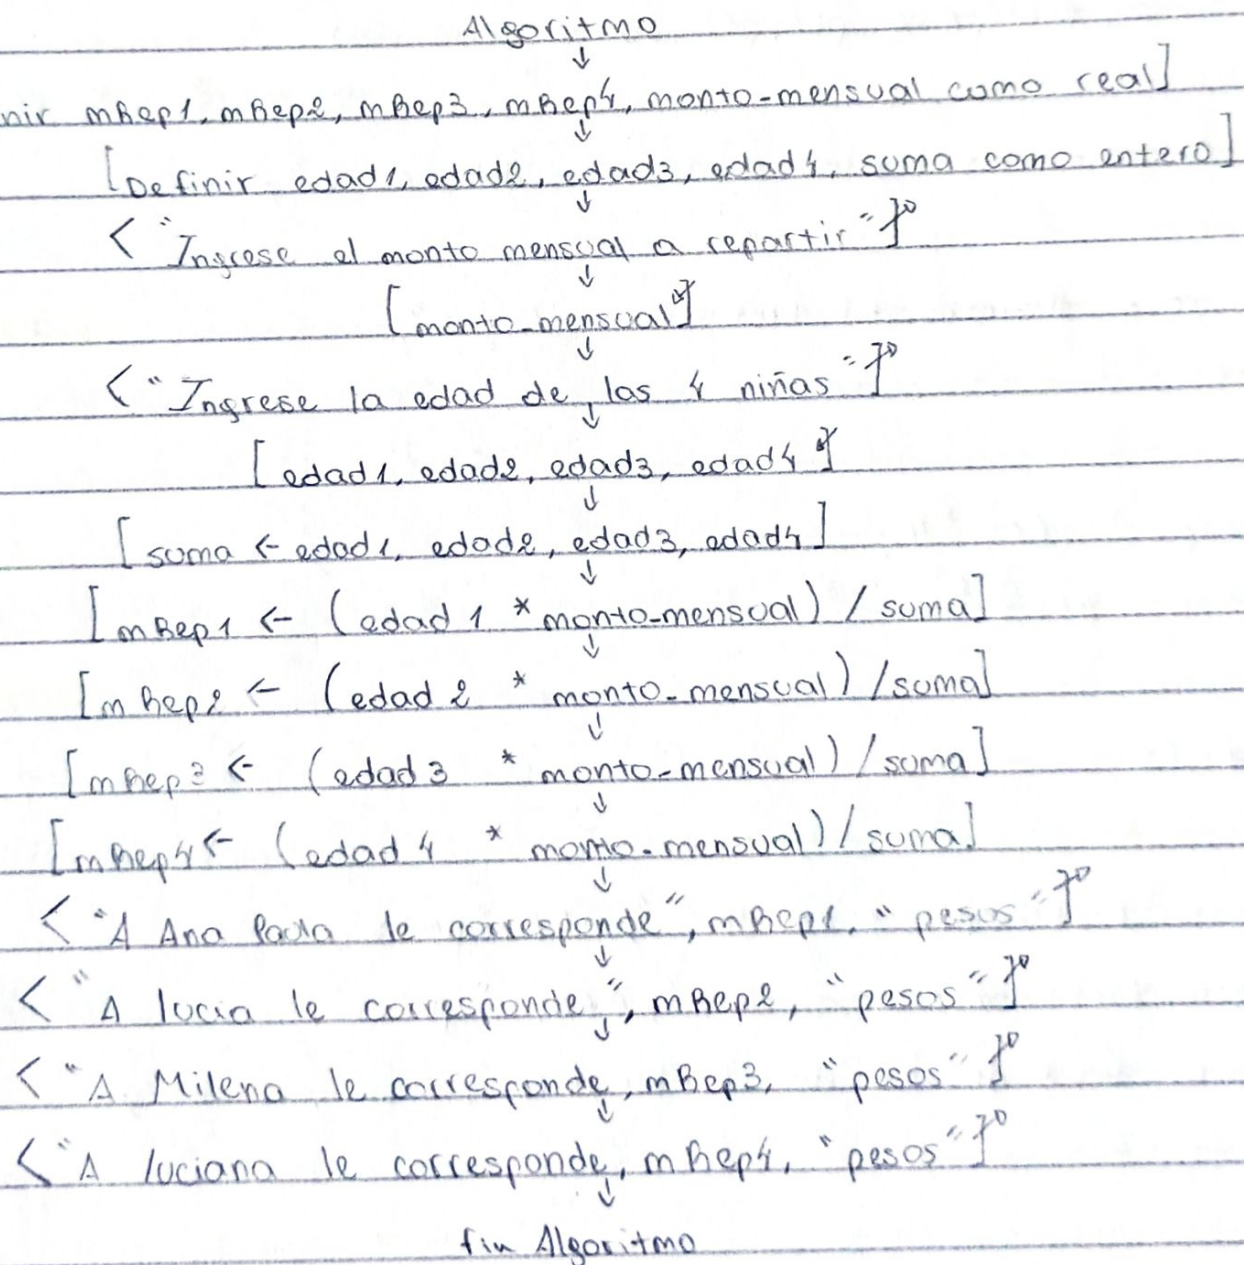 Algoritmo
↓
nir mRep1, mRep2, mRep3, mRep4, monto-mensual como real]
↓
[Definir edad1, edad2, edad3, edad4, suma como entero]
↓
< "Ingrese el monto mensual a repartir"
↓
[monto-mensual]
↓
< "Ingrese la edad de las 4 niñas"
↓
[edad1, edad2, edad3, edad4]
↓
[suma ← edad1, edad2, edad3, edad4]
↓
[mRep1 ← (edad 1 * monto-mensual) / suma]
↓
[mRep2 ← (edad 2 * monto-mensual) / suma]
↓
[mRep3 ← (edad 3 * monto-mensual) / suma]
↓
[mRep4 ← (edad 4 * monto-mensual) / suma]
↓
< "A Ana Paola le corresponde", mRep1, "pesos"
↓
< "A lucia le corresponde", mRep2, "pesos"
↓
< "A Milena le corresponde, mRep3, "pesos"
↓
< "A luciana le corresponde, mRep4, "pesos"
↓
fin Algoritmo